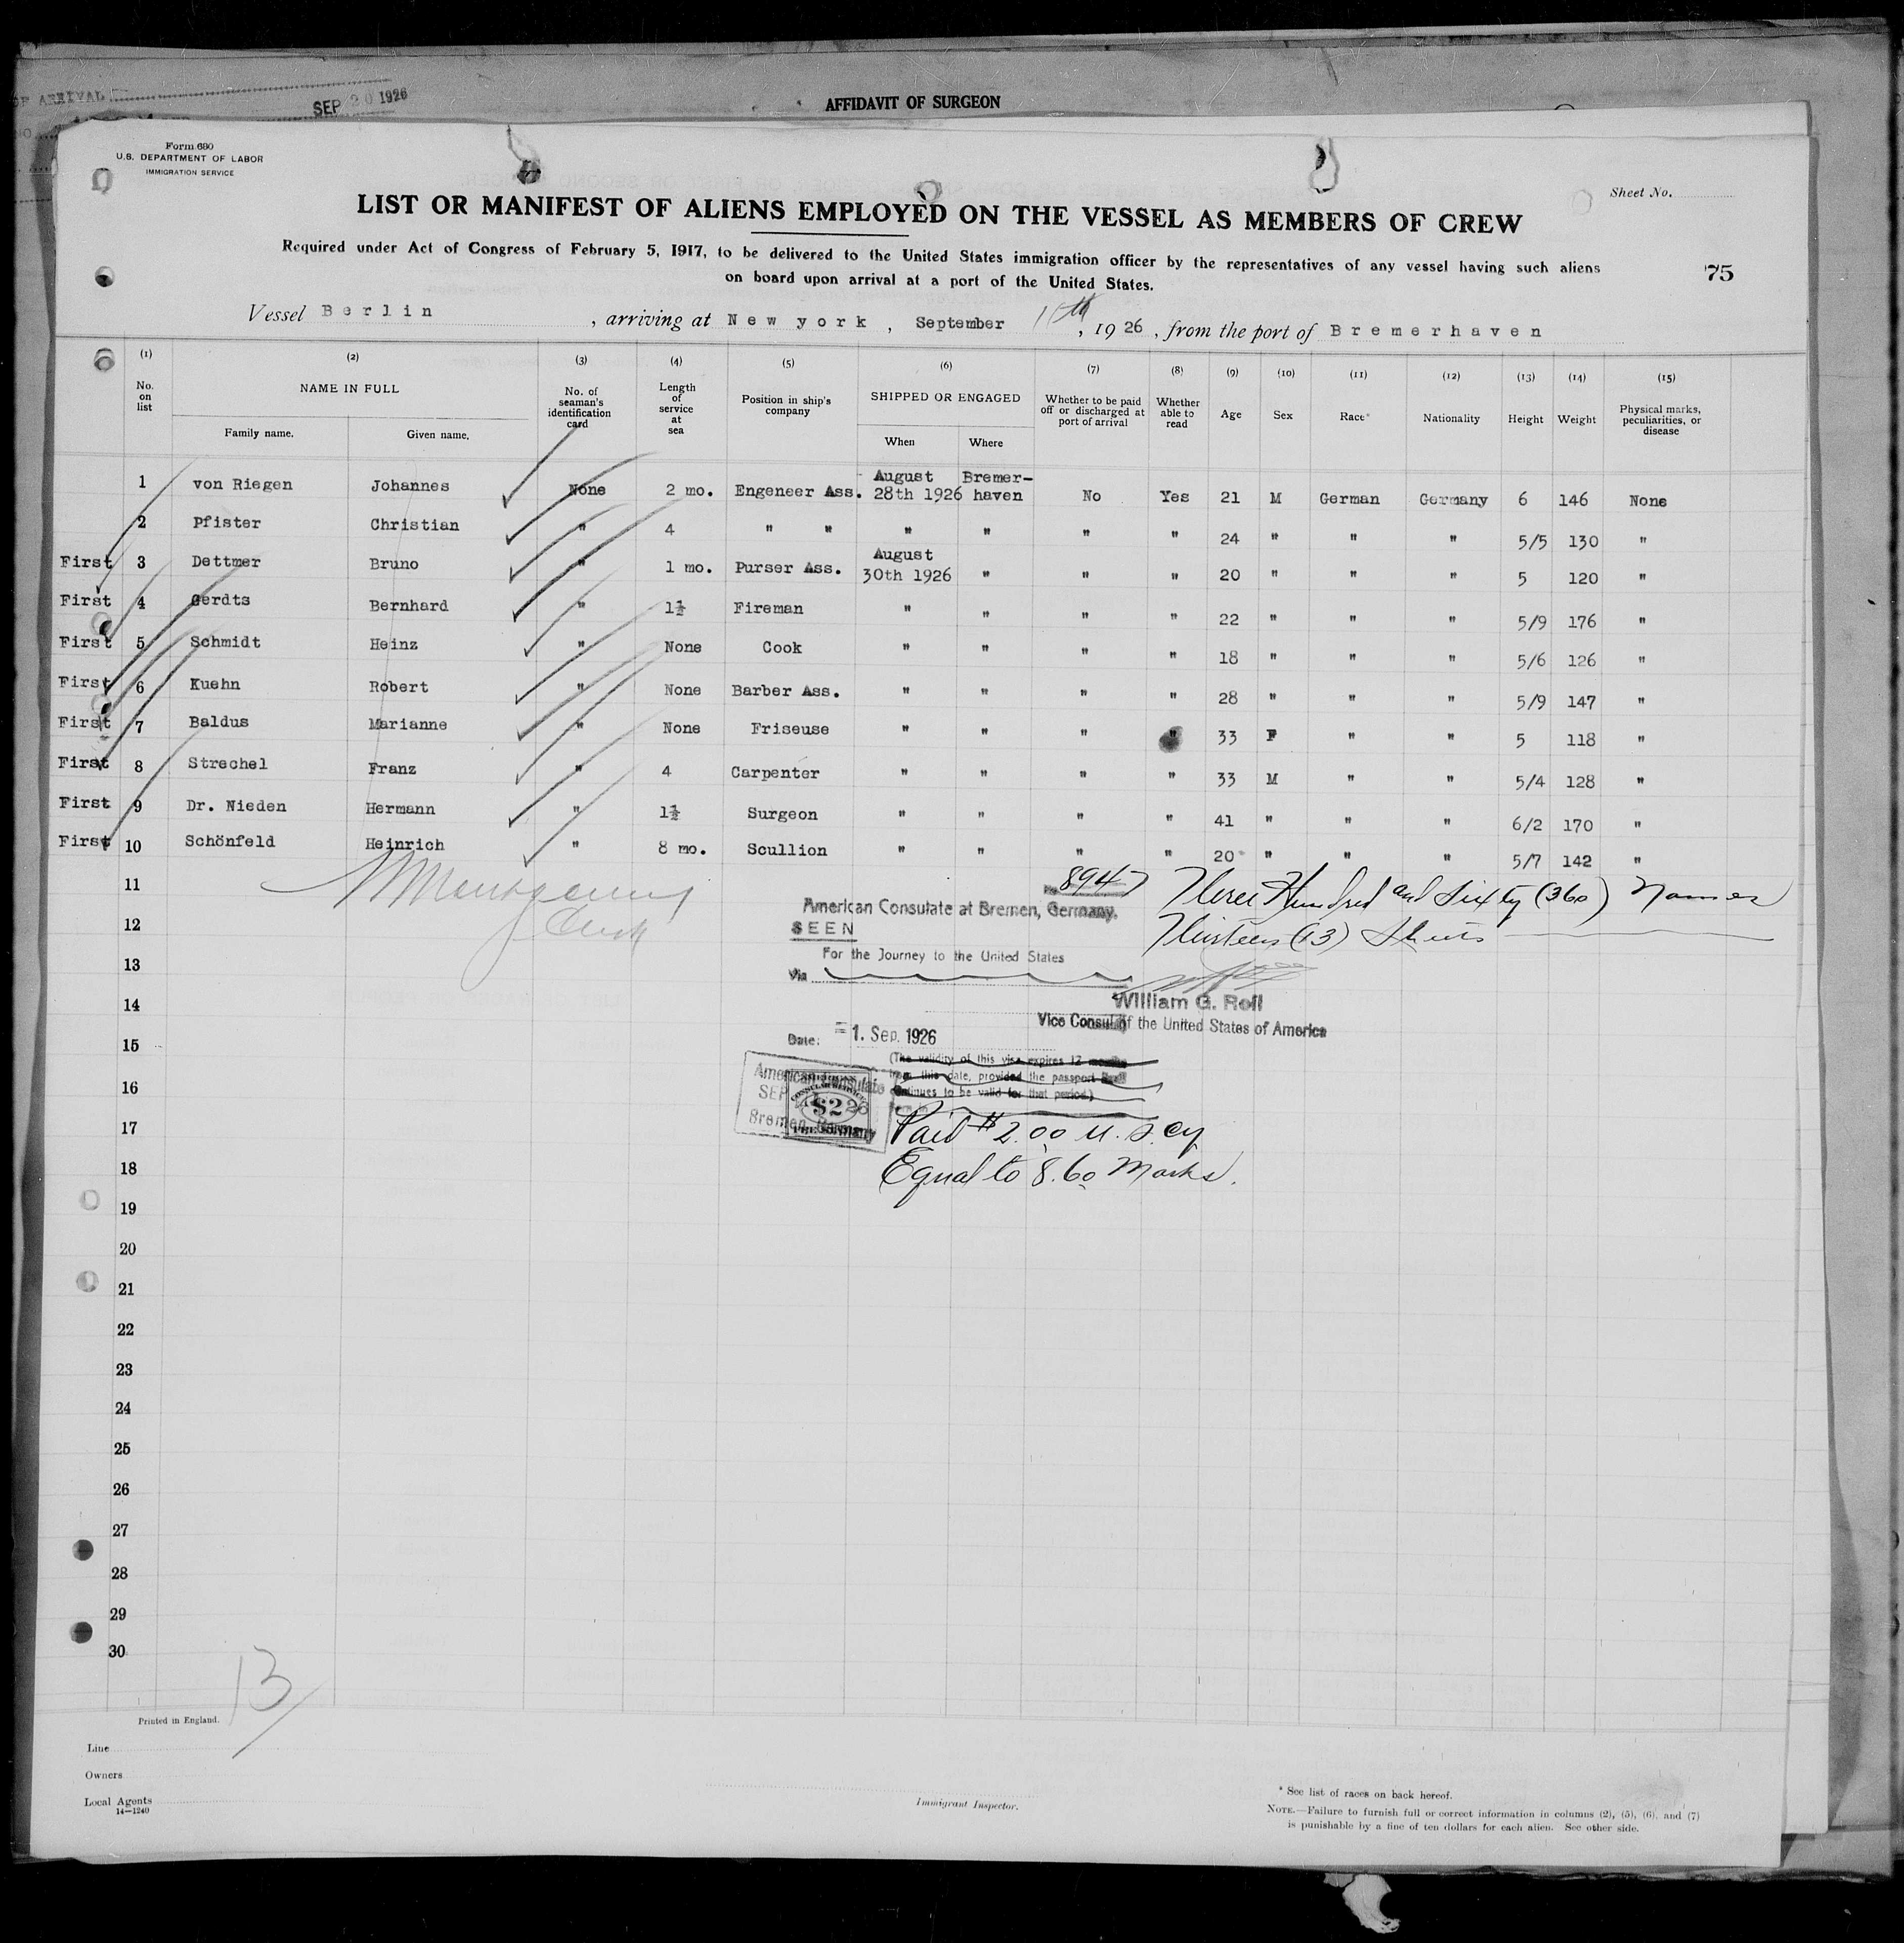 OF ARRIVAL
SEP 20 1926
AFFIDAVIT OF SURGEON
Form 680
U.S. DEPARTMENT OF LABOR
IMMIGRATION SERVICE
Sheet No.
LIST OR MANIFEST OF ALIENS EMPLOYED ON THE VESSEL AS MEMBERS OF CREW
Required under Act of Congress of February 5, 1917, to be delivered to the United States immigration officer by the representatives of any vessel having such aliens
on board upon arrival at a port of the United States.
75
Vessel Berlin, arriving at New york, September, 1926, from the port of Bremerhaven
(1) (2) (3) (4) (5) (6) (7) (8) (9) (10) (11) (12) (13) (14) (15)
No. on list
NAME IN FULL
Family name. Given name.
No. of seaman's identification card
Length of service at sea
Position in ship's company
SHIPPED OR ENGAGED
When Where
Whether to be paid off or discharged at port of arrival
Whether able to read
Age
Sex
Race*
Nationality
Height
Weight
Physical marks, peculiarities, or disease
1 von Riegen Johannes None 2 mo. Engeneer Ass. August 28th 1926 Bremer-haven No Yes 21 M German Germany 6 146 None
2 Pfister Christian " 4 " " " " " " 24 " " " 5/5 130 "
First 3 Dettmer Bruno " 1 mo. Purser Ass. August 30th 1926 " " " 20 " " " 5 120 "
First 4 Gerdts Bernhard " 1½ Fireman " " " " 22 " " " 5/9 176 "
First 5 Schmidt Heinz " None Cook " " " " 18 " " " 5/6 126 "
First 6 Kuehn Robert " None Barber Ass. " " " " 28 " " " 5/9 147 "
First 7 Baldus Marianne " None Friseuse " " " " 33 F " " 5 118 "
First 8 Strechel Franz " 4 Carpenter " " " " 33 M " " 5/4 128 "
First 9 Dr. Nieden Hermann " 1½ Surgeon " " " " 41 " " " 6/2 170 "
First 10 Schönfeld Heinrich " 8 mo. Scullion " " " " 20 " " " 5/7 142 "
11
12
13
14
15
16
17
18
19
20
21
22
23
24
25
26
27
28
29
30
Montgomery
Clerk
No 8947
American Consulate at Bremen, Germany.
SEEN
For the Journey to the United States
Via
Three Hundred and Sixty (360) Names
Thirteen (13) Sheets
William G. Roll
Vice Consul of the United States of America
Date: 1. Sep. 1926
(The validity of this visa expires 12 months
from this date, provided the passport
continues to be valid for that period.)
American Consulate
SEP
Bremen, Germany
CONSULAR SERVICE
$2
Paid $2.00 U.S. Cy
Equal to 8.60 Marks.
13
Printed in England.
Line
Owners
Local Agents
14—1240
Immigrant Inspector.
* See list of races on back hereof.
NOTE.—Failure to furnish full or correct information in columns (2), (5), (6), and (7)
is punishable by a fine of ten dollars for each alien. See other side.